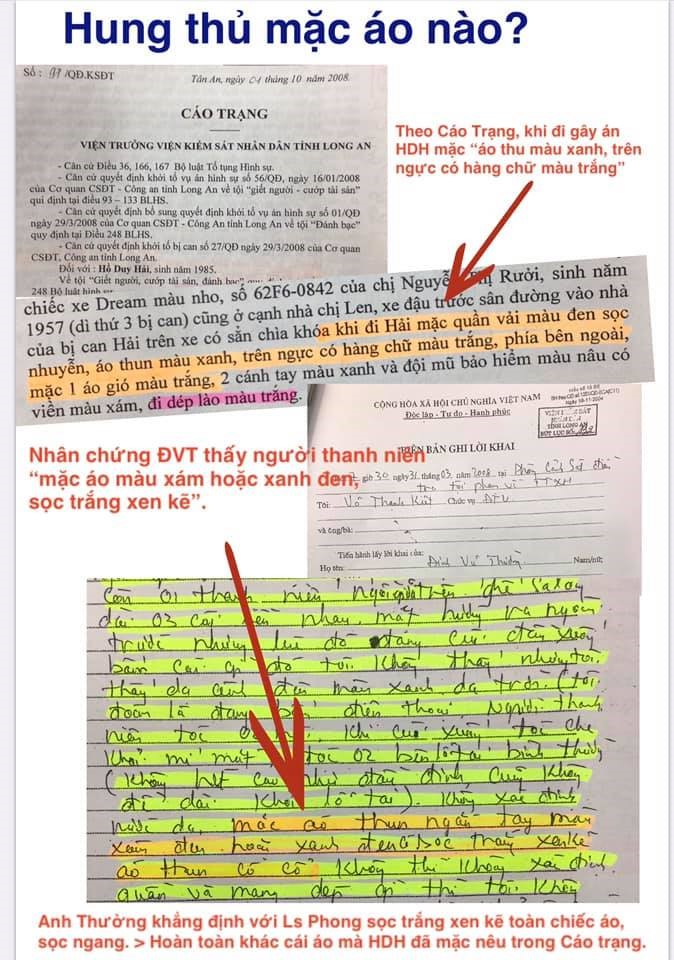 Hung thủ mặc áo nào?
Số : 97/QĐ.KSĐT
Tân An, ngày 01 tháng 10 năm 2008.
CÁO TRẠNG
VIỆN TRƯỞNG VIỆN KIỂM SÁT NHÂN DÂN TỈNH LONG AN
- Căn cứ Điều 36, 166, 167 Bộ luật Tố tụng Hình sự.
- Căn cứ quyết định khởi tố vụ án hình sự số 56/QĐ, ngày 16/01/2008
của Cơ quan CSĐT - Công an tỉnh Long An về tội “giết người - cướp tài sản”
qui định tại điều 93 – 133 BLHS.
- Căn cứ quyết định bổ sung quyết định khởi tố vụ án hình sự số 01/QĐ
ngày 29/3/2008 của Cơ quan CSĐT - Công An tỉnh Long An về tội “Đánh bạc”
quy định tại Điều 248 BLHS.
- Căn cứ quyết định khởi tố bị can số 27/QĐ ngày 29/3/2008 của Cơ quan
CSĐT, Công an tỉnh Long An.
Đối với : Hồ Duy Hải, sinh năm 1985.
Về tội “Giết người, cướp tài sản, đánh bạc”
248 Bộ luật hình sự
Theo Cáo Trạng, khi đi gây án
HDH mặc “áo thu màu xanh, trên
ngực có hàng chữ màu trắng”
chiếc xe Dream màu nho, số 62F6-0842 của chị Nguyễn Thị Rưởi, sinh năm
1957 (dì thứ 3 bị can) cũng ở cạnh nhà chị Len, xe đậu trước sân đường vào nhà
của bị can Hải trên xe có sẵn chìa khóa khi đi Hải mặc quần vải màu đen sọc
nhuyễn, áo thun màu xanh, trên ngực có hàng chữ màu trắng, phía bên ngoài,
mặc 1 áo gió màu trắng, 2 cánh tay màu xanh và đội mũ bảo hiểm màu nâu có
viền màu xám, đi dép lào màu trắng.
CỘNG HÒA XÃ HỘI CHỦ NGHĨA VIỆT NAM
Độc lập - Tự do - Hạnh phúc
BIÊN BẢN GHI LỜI KHAI
giờ 30 ngày 31 tháng 03 năm 2008 tại Phòng Cảnh Sát điều
tra tội phạm về TTXH
Tôi: Võ Thanh Kiệt Chức vụ ĐTV
và ông/bà:
Tiến hành lấy lời khai của:
Họ tên: Đinh Vũ Thường Nam/nữ:
Nhân chứng ĐVT thấy người thanh niên
“mặc áo màu xám hoặc xanh đen,
sọc trắng xen kẽ”.
Còn 01 thanh niên ngồi trên ghế salon
dài 03 cái liền nhau, mặt hướng ra ngoài
trước nhưng lúc đó đang cúi đầu xuống
bấm cái gì đó tôi không thấy nhưng tôi
thấy da cánh đèn màu xanh da trời (tôi
đoán là đang bấm điện thoại. Người thanh
niên tóc khi cúi xuống tóc che
khỏi mí mắt, tóc 02 bên lỗ tai bình thường
(không hớt cao như đầu đinh cũng không
để dài khỏi lỗ tai). Không xác định
nước da, mặc áo thun ngắn tay màu
xám đen hoặc xanh đen sọc trắng xen kẽ
áo thun có cổ, không thì không xác định
quần và mang dép gì thì tôi không
Anh Thường khẳng định với Ls Phong sọc trắng xen kẽ toàn chiếc áo,
sọc ngang. > Hoàn toàn khác cái áo mà HDH đã mặc nêu trong Cáo trạng.